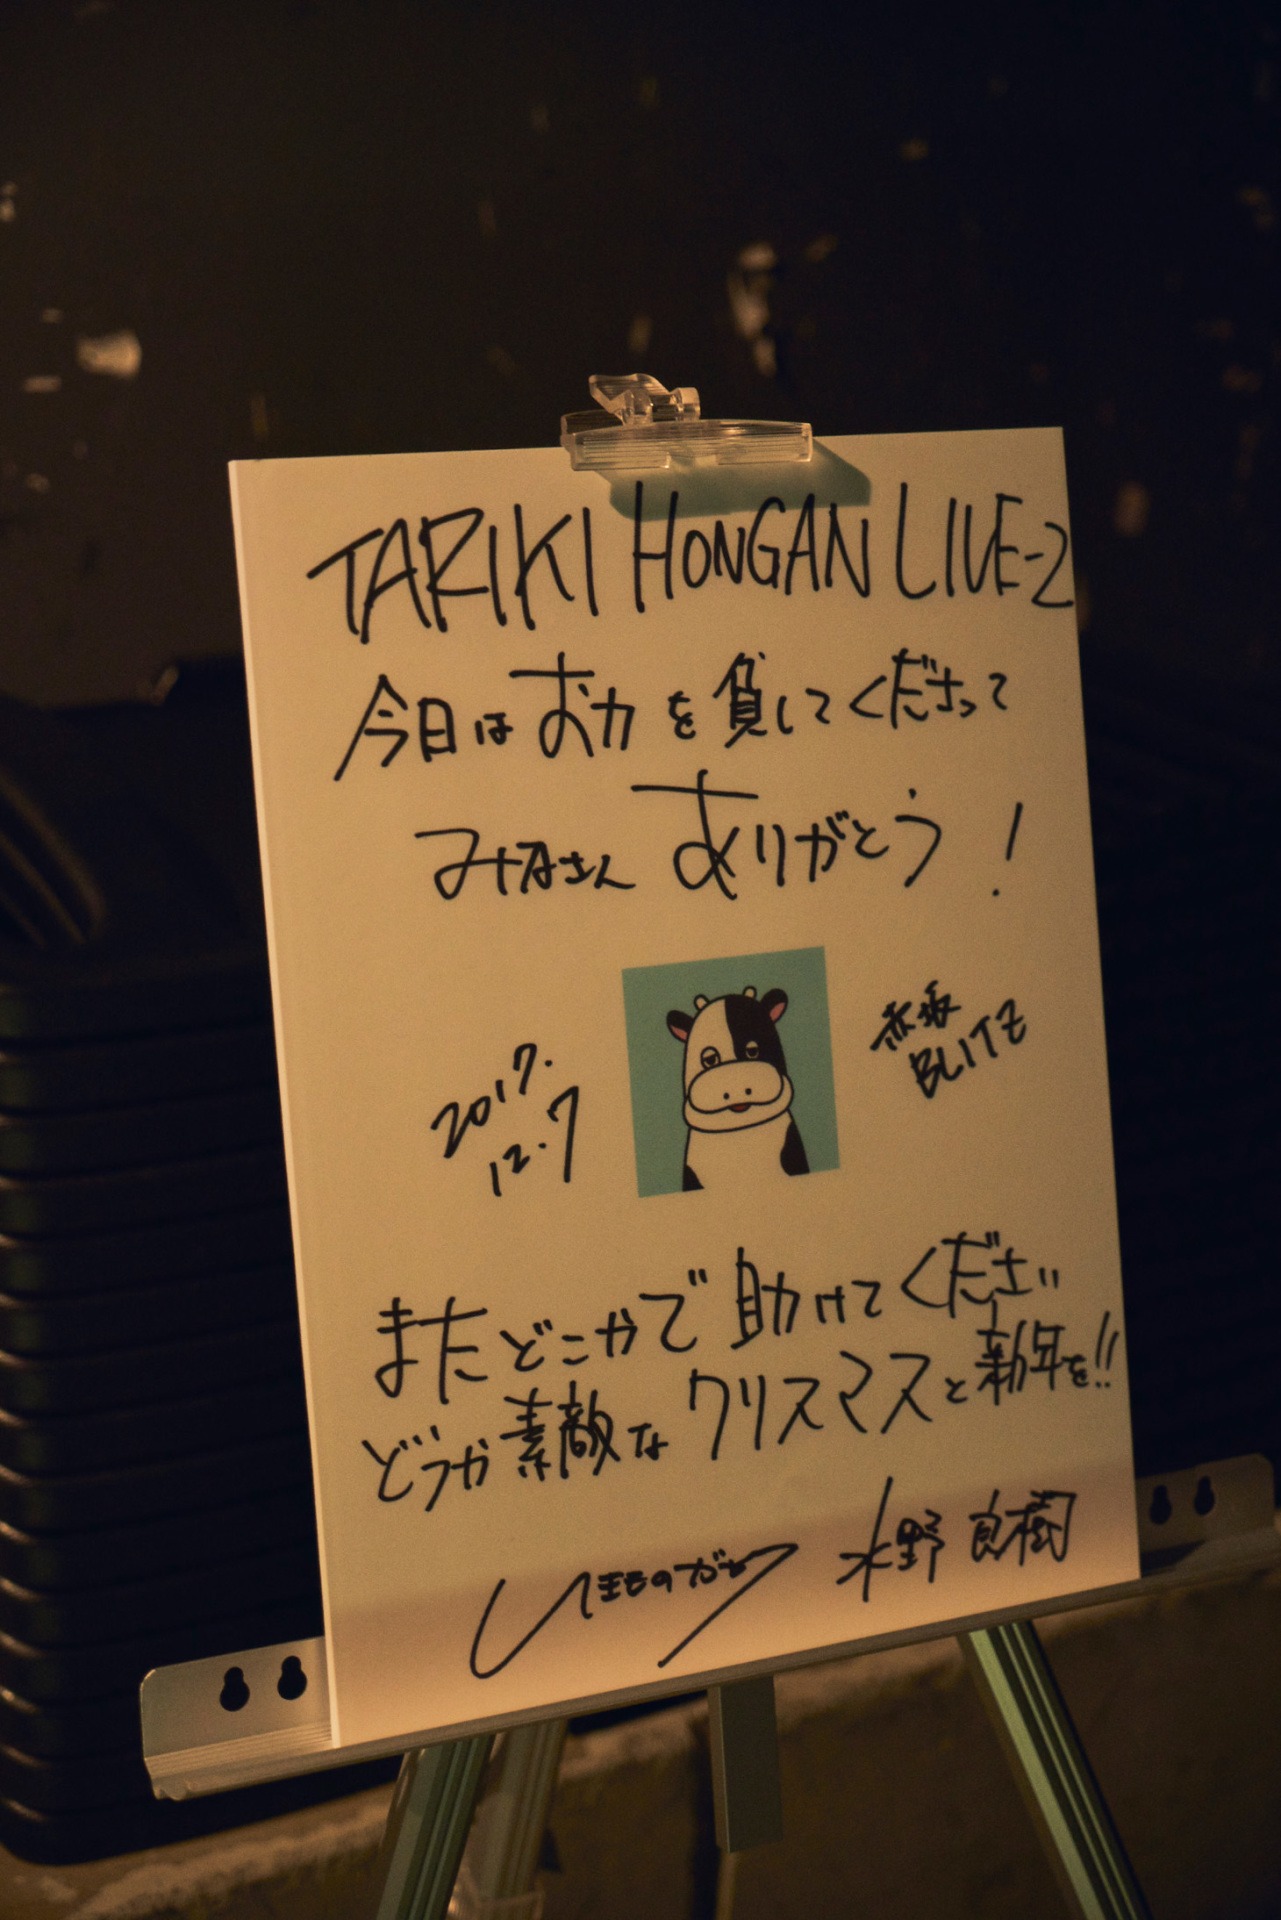 TARIKI HONGAN LIVE-2
今日はお力を貸してくださって
みなさんありがとう!
2017.
12.7
赤坂
BLITZ
またどこかで助けてください
どうか素敵なクリスマスと新年を!!
いきものがかり 水野良樹